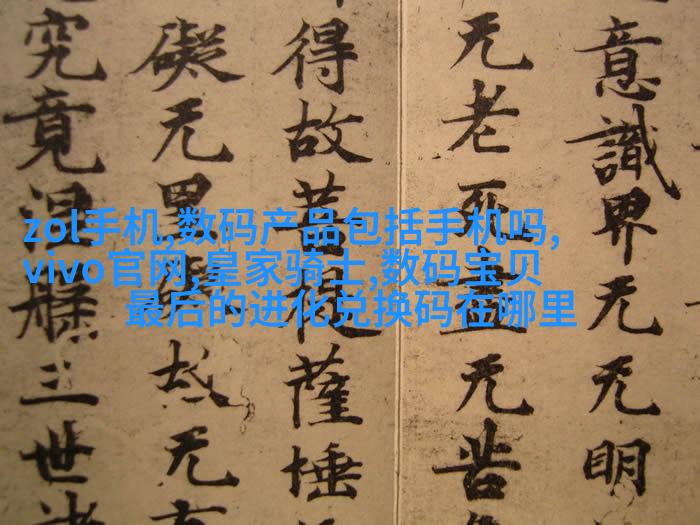 zol手机,数码产品包括手机吗,
vivo官网,皇家骑士,数码宝贝
最后的进化兑换码在哪里
意識界无无明
无老死盡无苦
得故菩提薩埵
礙无罣礙故无
究竟涅槃三世諸